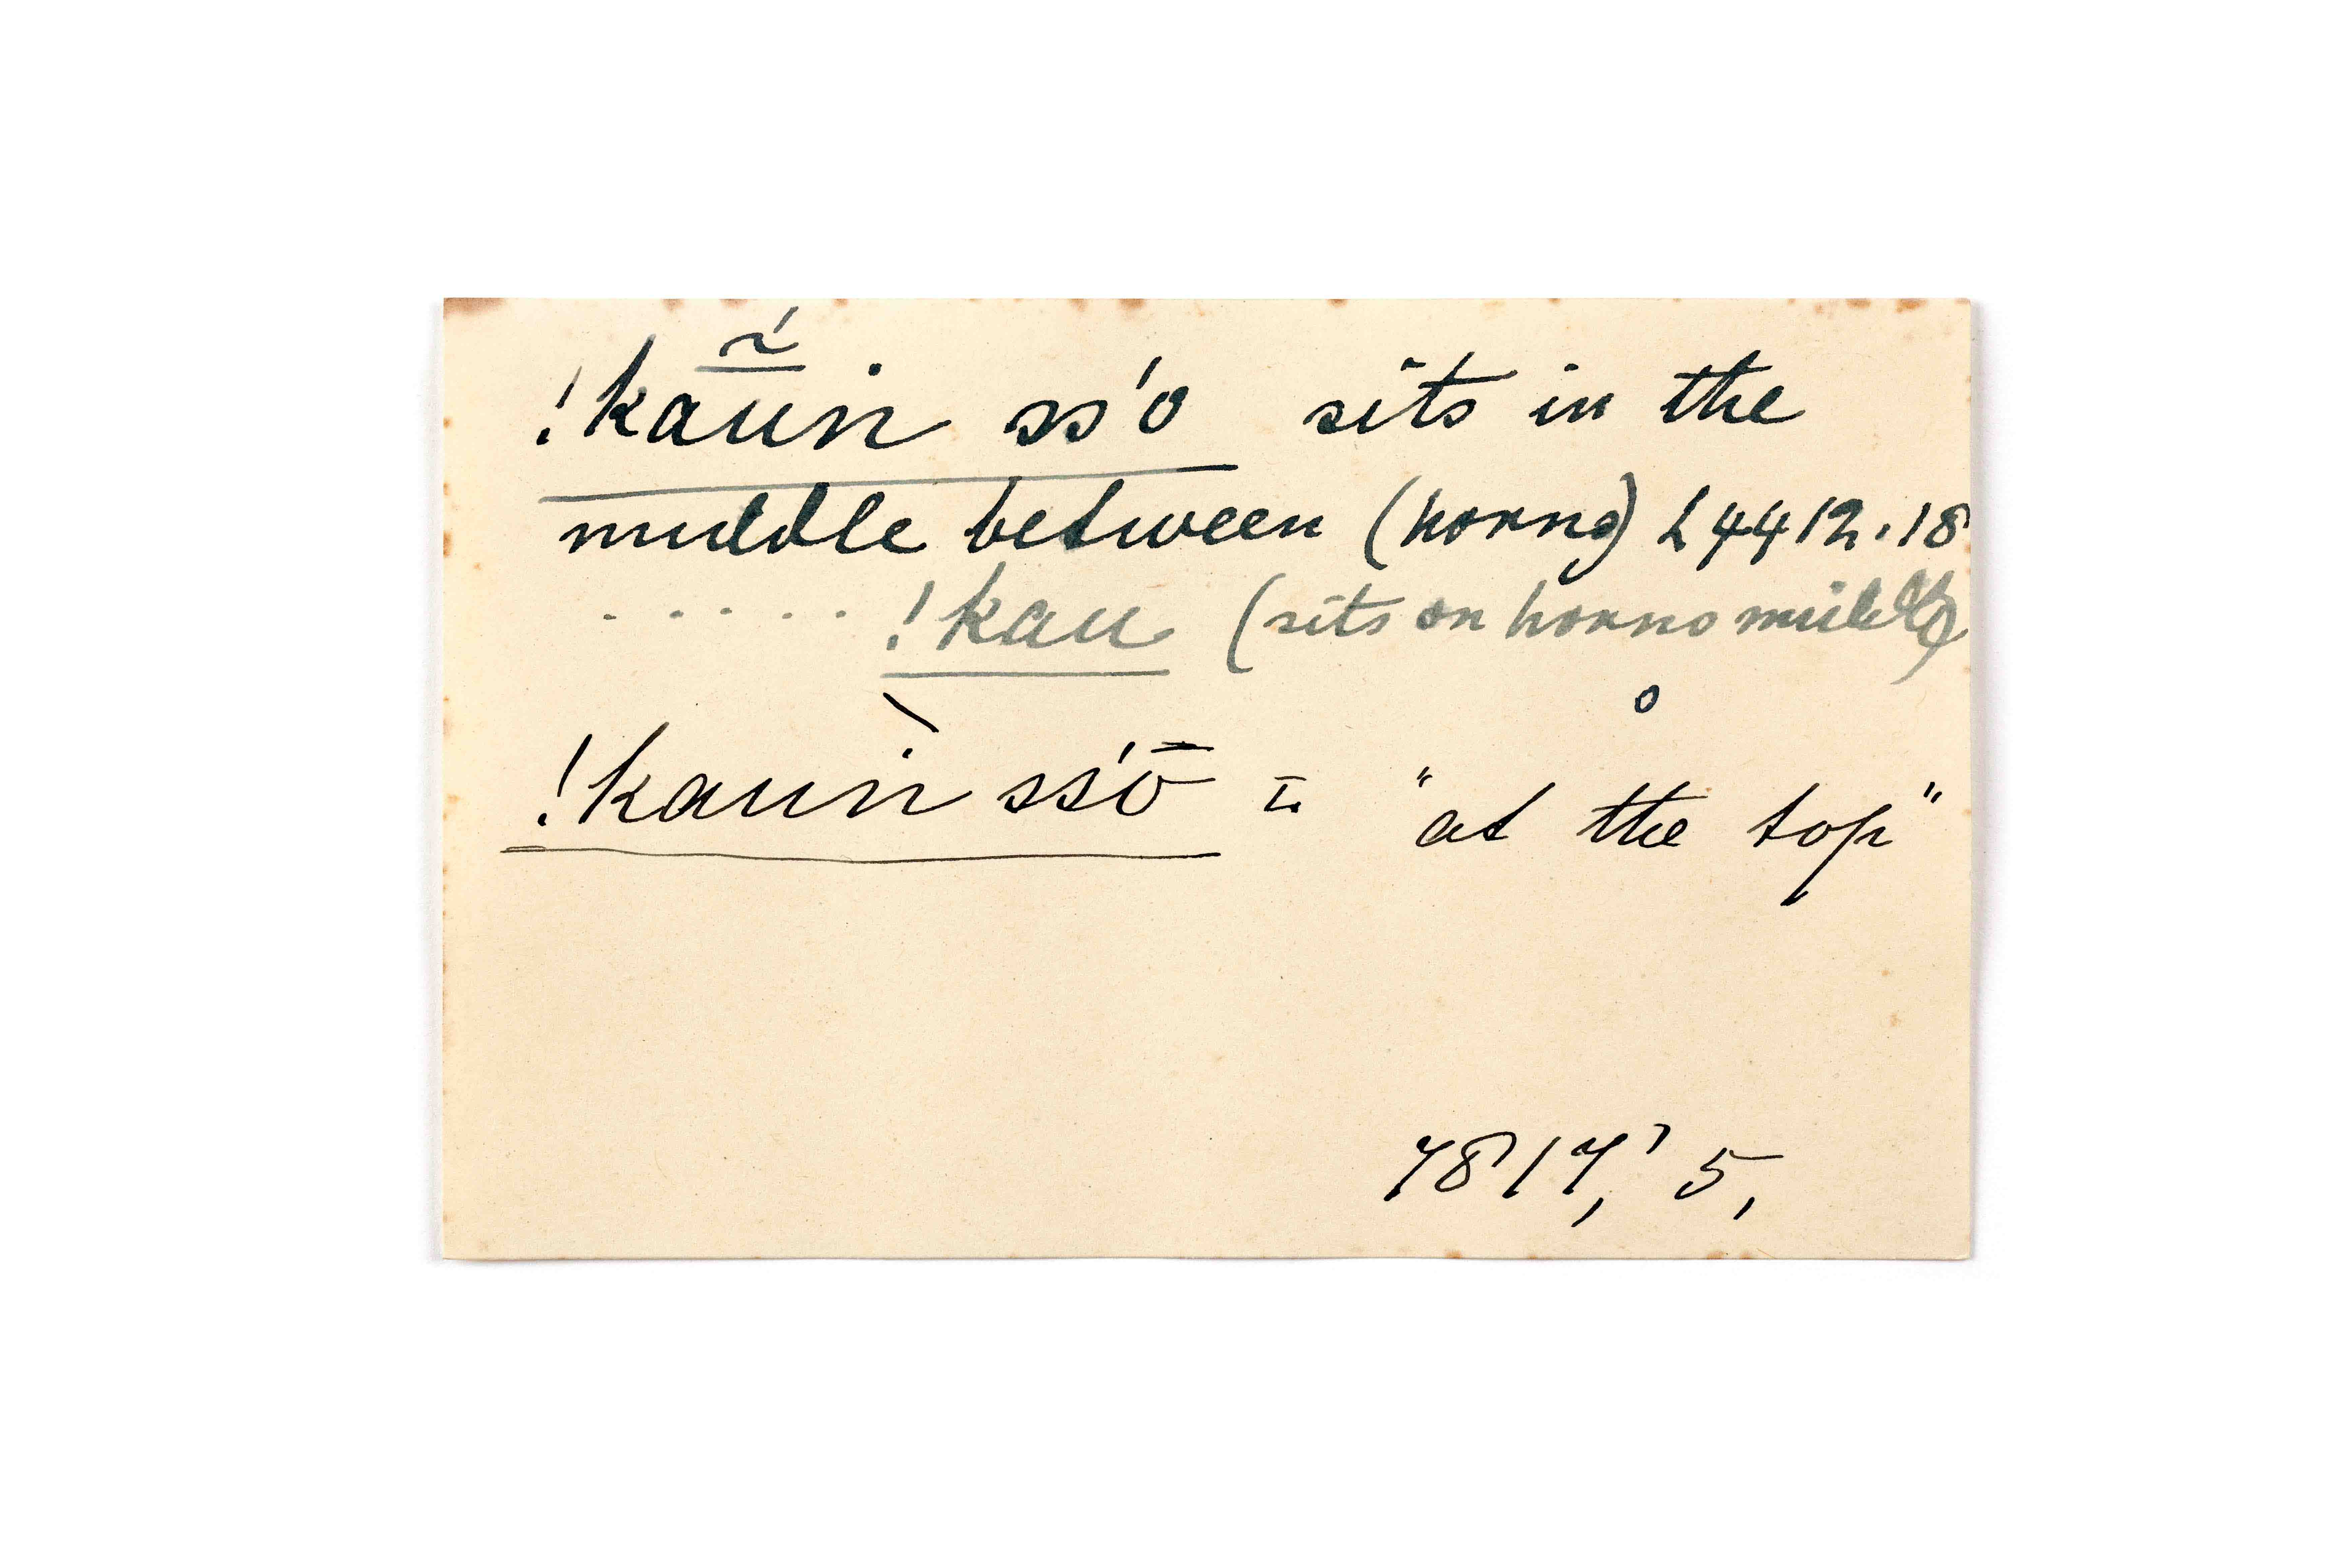 !kau̅̃́in ss'o sits in the
middle between (horns) L 4412.18
. . . . . !kau (sits on horns middle)
!kauìn ss'ō = "at the top"
7817,' 5,